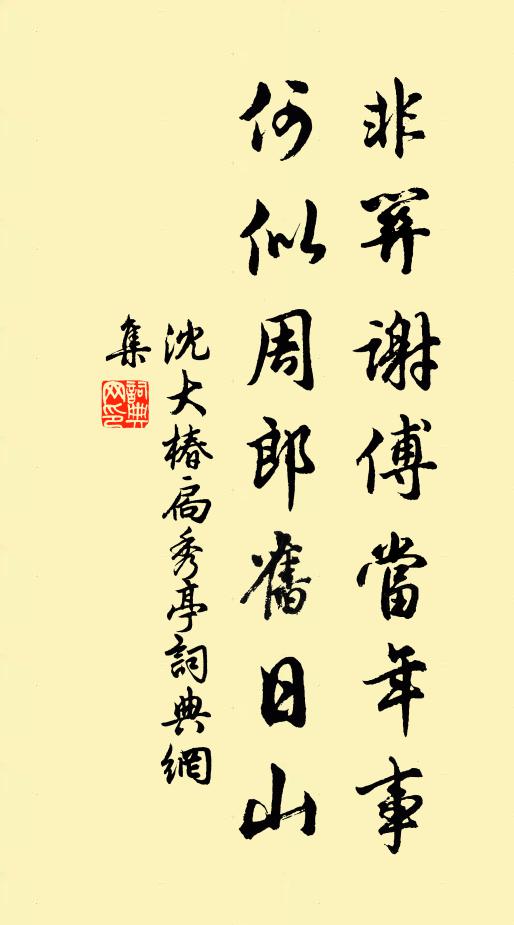 非謝傅當年事
何似周郎舊日山
沈大椿扁秀亭詞典網
集
詞典
網印